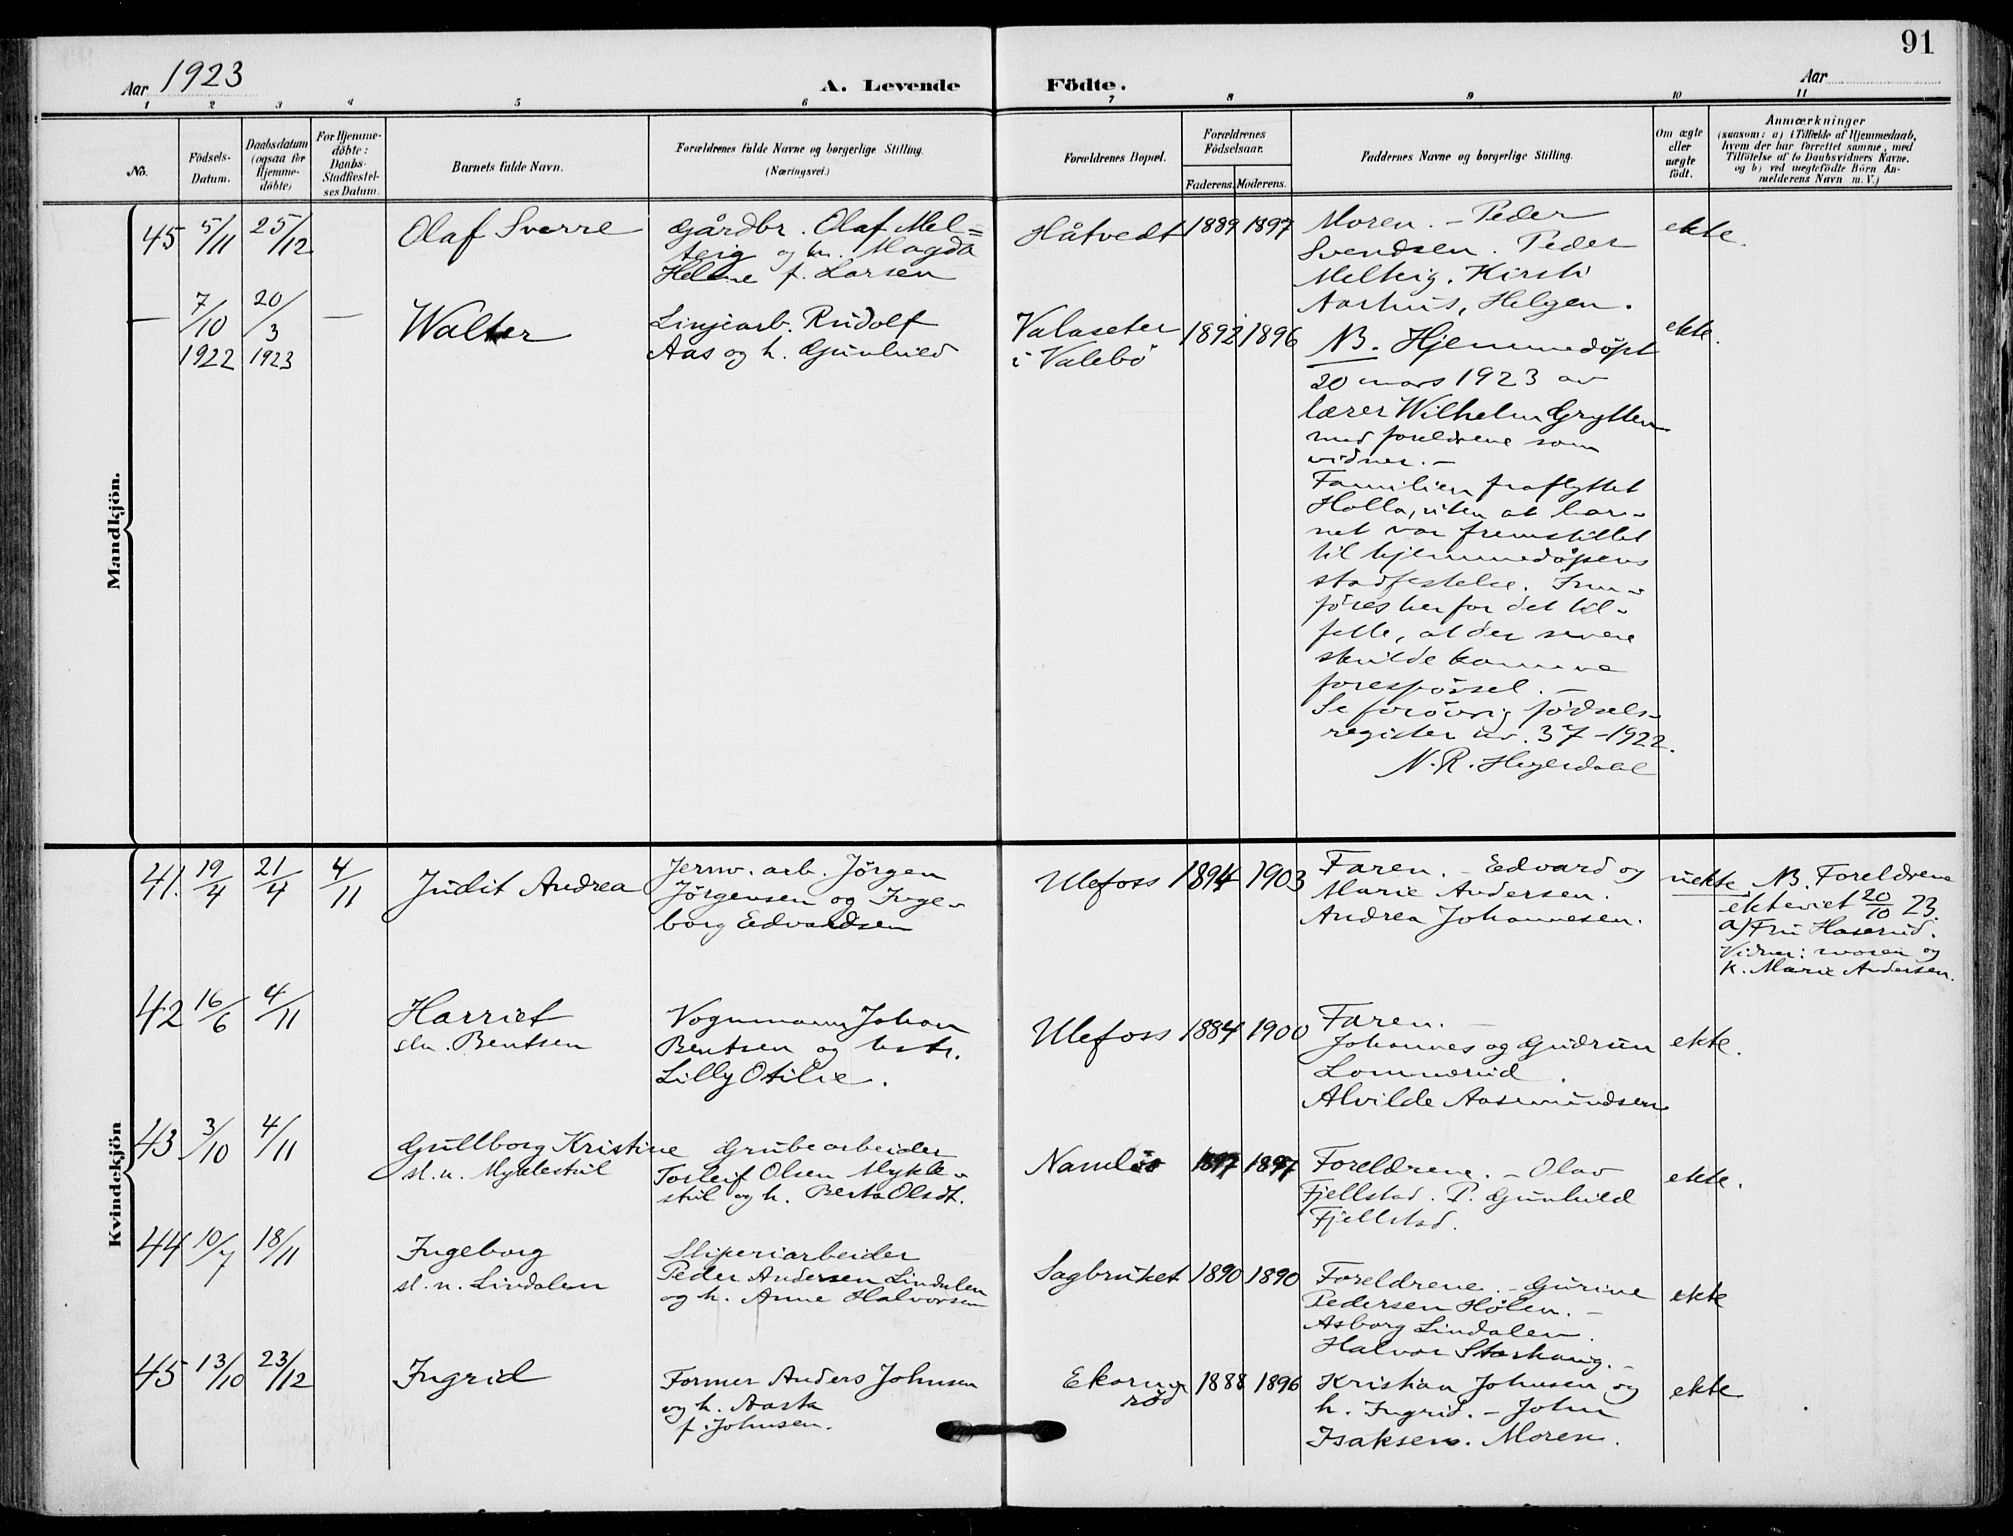 91
Aar 1923
A. Levende Födte.
Aar
1 2 3 4 5 6 7 8 9 10 11
No.
Födsels-
Datum.
Daabsdatum
(ogsaa for
Hjemme-
döbte)
For Hjemme-
döbte:
Daabs-
Stadfæstel-
ses Datum.
Barnets fulde Navn.
Forældrenes fulde Navne og borgerlige Stilling.
(Næringsvei.)
Forældrenes Bopæl.
Forældrenes
Födselsaar.
Faderens. Moderens.
Faddernes Navne og borgerlige Stilling.
Om ægte
eller
uægte
födt.
Anmærkninger
(saasom: a) i Tilfælde af Hjemmedaab,
hvem der har forrettet samme, med
Tilföielse af to Daabsvidners Navne.
og b) ved uægtefödte Börn An-
melderens Navn m. V.)
Mandkjön.
45 5/11 25/12
Olaf Sverre
Gårdbr. Olaf Mel=
teig og h. Magda
Helene f. Larsen
Håtvedt 1889 1897
Moren. - Peder
Svendsen. Peder
Melteig. Kirsti
Aarhus, Helgen.
ekte.
— 7/10 1922 20/3 1923 —
Walter
Linjearb. Rudolf
Aas og h. Gunhild
Valaseter
i Valebö
1892 1896
NB. Hjemmedøpt
20 mars 1923 av
lærer Wilhelm Grytten
med foreldrene som
vidner. -
Familien fraflyttet
Holla, uten at bar-
net var fremstillet
til hjemmedåpens
stadfestelse. Inn-
føres her for det til-
felle, at der senere
skulde komme
forespörsel. -
Se forövrig fødsels-
register nr. 37 - 1922.
N. R. Heyerdahl
ekte.
Kvindekjön
41. 19/4 21/4 4/11
Judit Andrea
Jernv. arb. Jörgen
Jörgensen og Inge-
borg Edvardsen
Ulefoss 1894 1903
Faren. - Edvard og
Marie Andersen.
Andrea Johannesen.
uekte.
NB. Foreldrene
ekteviet 20/10 23.
a) Fru Haserud.
Vidner: moren og
K. Marie Andersen.
42 16/6 4/11
Harriet
sln. Bentsen
Vognmann Johan
Bentsen og hstr.
Lilly Otilie.
Ulefoss 1884 1900
Faren. -
Johannes og Gudrun
Lommerud.
Alvilde Aasmundsen
ekte.
43 3/10 4/11
Gullborg Kristine
sl. n. Myklestul
Grubearbeider
Torleif Olsen Mykle-
stul og h. Berta Olsdt.
Namløs 1897 1897
Foreldrene. - Olav
Fjellstad. P. Gunhild
Fjellstad.
ekte.
44 10/7 18/11
Ingeborg
sl. n. Lindalen
Sliperiarbeider
Peder Andersen Lindalen
og h. Anne Halvorsen
Sagbruket 1890 1890
Foreldrene. - Gurine
Pedersen Hølen. -
Asborg Lindalen.
Halvor Storhaug. -
ekte
45 13/10 23/12
Ingrid
Former Anders Johnsen
og h. Aasta
f. Johnsen.
Ekorn-
rød
1888 1896
Kristian Johnsen og
h. Ingrid. - John
Isaksen. Moren.
ekte